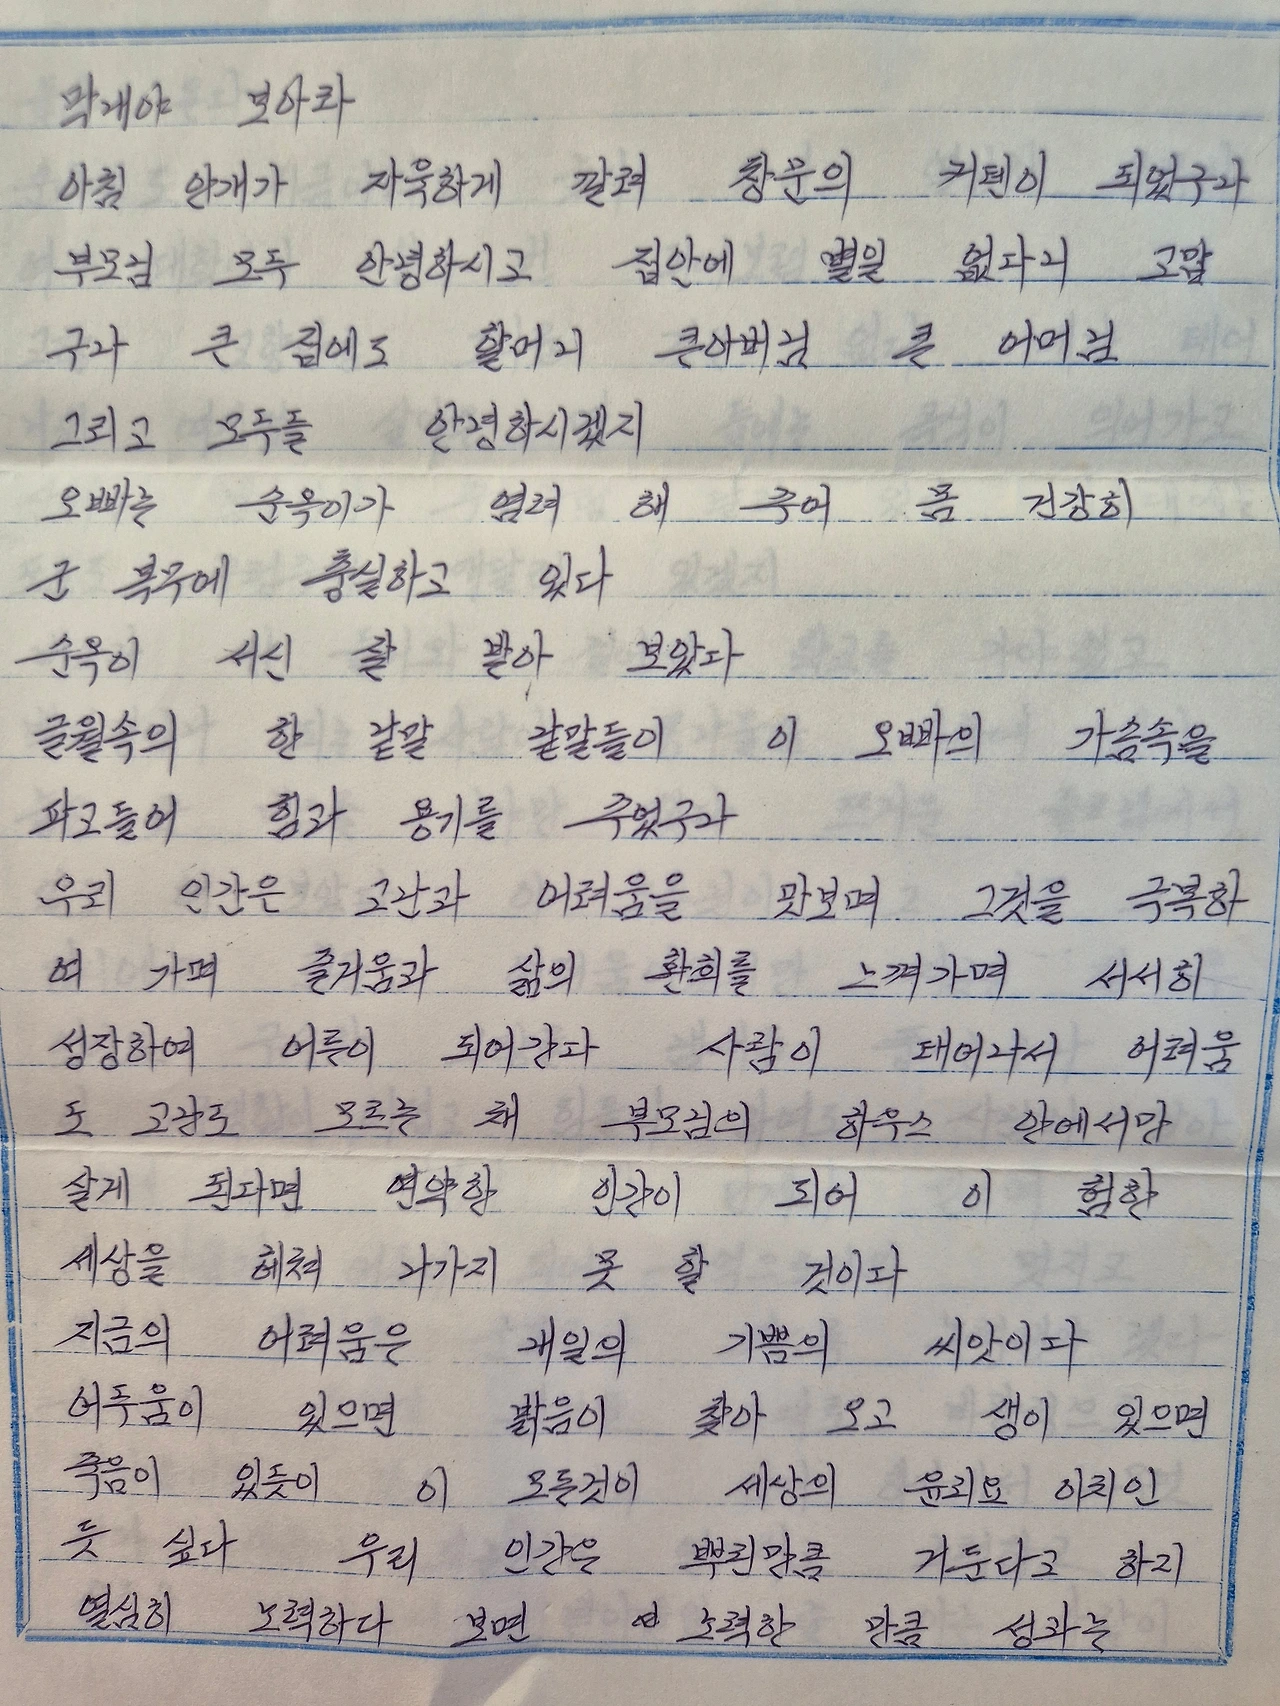 막내야 보아라
아침 안개가 자욱하게 깔려 창문의 커텐이 되었구나
부모님 모두 안녕하시고 집안에 별일 없다니 고맙
구나 큰 집에도 할머니 큰아버님 큰 어머님
그리고 모두들 안녕하시겠지
오빠는 순옥이가 염려 해 주어 몸 건강히
군 복무에 충실하고 있다
순옥이 서신 잘 받아 보았다
글월속의 한 같말 같말들이 이 오빠의 가슴속을
파고들어 힘과 용기를 주었구나
우리 인간은 고난과 어려움을 맛보며 그것을 극복하
여 가며 즐거움과 삶의 환희를 느껴가며 서서히
성장하여 어른이 되어간다 사람이 태어나서 어려움
도 고난도 모르는 채 부모님의 하우스 안에서만
살게 된다면 연약한 인간이 되어 이 험한
세상을 헤쳐 나가지 못 할 것이다
지금의 어려움은 내일의 기쁨의 씨앗이다
어두움이 있으면 밝음이 찾아 오고 생이 있으면
죽음이 있듯이 이 모든것이 세상의 윤리요 이치인
듯 싶다 우리 인간은 뿌린만큼 거둔다고 하지
열심히 노력하다 보면 노력한 만큼 성과는